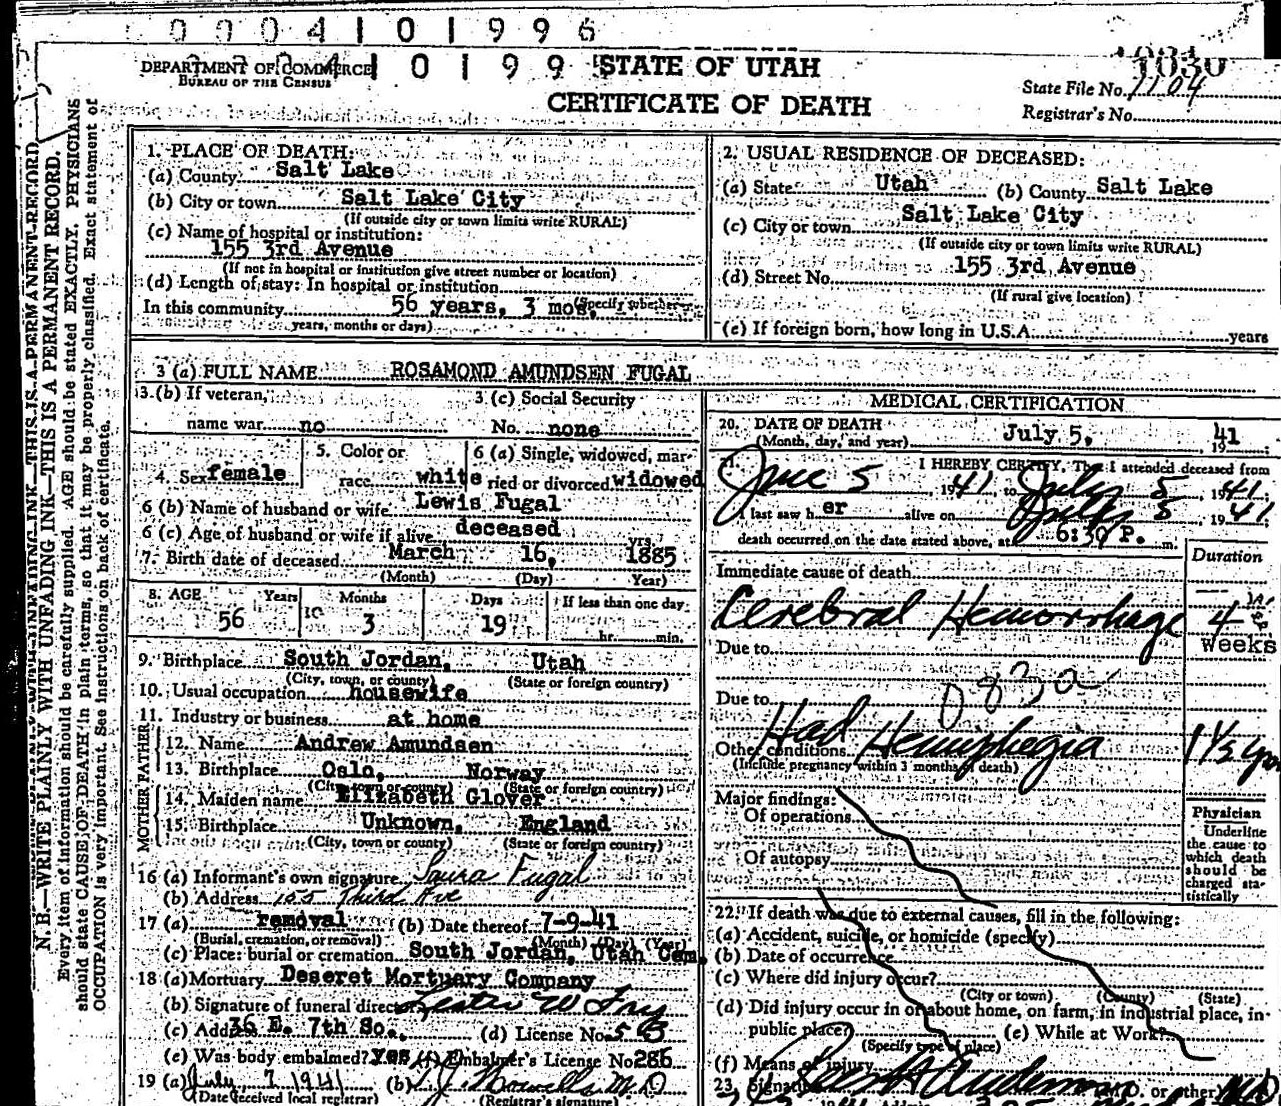 0004101996
DEPARTMENT OF COMMERCE
BUREAU OF THE CENSUS
STATE OF UTAH
CERTIFICATE OF DEATH
State File No. 1104
Registrar's No.
N. B.—WRITE PLAINLY WITH UNFADING INK—THIS IS A PERMANENT RECORD.
Every item of information should be carefully supplied. AGE should be stated EXACTLY. PHYSICIANS
should state CAUSE OF DEATH in plain terms, so that it may be properly classified. Exact statement of
OCCUPATION is very important. See instructions on back of certificate.
1. PLACE OF DEATH:
(a) County Salt Lake
(b) City or town Salt Lake City
(If outside city or town limits write RURAL)
(c) Name of hospital or institution:
155 3rd Avenue
(If not in hospital or institution give street number or location)
(d) Length of stay: In hospital or institution
(Specify whether
In this community 56 years, 3 mos.
years, months or days)
2. USUAL RESIDENCE OF DECEASED:
(a) State Utah (b) County Salt Lake
(c) City or town Salt Lake City
(If outside city or town limits write RURAL)
(d) Street No. 155 3rd Avenue
(If rural give location)
(e) If foreign born, how long in U.S.A. years
3 (a) FULL NAME ROSAMOND AMUNDSEN FUGAL
3. (b) If veteran,
name war no
3 (c) Social Security
No. none
4. Sex female
5. Color or
race white
6 (a) Single, widowed, mar-
ried or divorced widowed
6 (b) Name of husband or wife Lewis Fugal
6 (c) Age of husband or wife if alive deceased yrs.
7. Birth date of deceased March 16, 1885
(Month) (Day) Year)
8. AGE Years Months Days If less than one day
56 3 19 hr. min.
9. Birthplace South Jordan, Utah
(City, town, or county) (State or foreign country)
10. Usual occupation housewife
11. Industry or business at home
FATHER
12. Name Andrew Amundsen
13. Birthplace Oslo, Norway
(City, town or county) (State or foreign country)
MOTHER
14. Maiden name Elizabeth Glover
15. Birthplace Unknown, England
(City, town or county) (State or foreign country)
16 (a) Informant's own signature Laura Fugal
(b) Address 155 Third Ave
17 (a) removal (b) Date thereof 7-9-41
(Burial, cremation, or removal) (Month) (Day) (Year)
(c) Place: burial or cremation South Jordan, Utah Cem.
18 (a) Mortuary Deseret Mortuary Company
(b) Signature of funeral director
(c) Address 36 E. 7th So. (d) License No.
(e) Was body embalmed? yes (f) Embalmer's License No. 286
19 (a) July 7 1941 (b) M.D
(Date received local registrar) (Registrar's signature)
MEDICAL CERTIFICATION
20. DATE OF DEATH
(Month, day, and year) July 5, 1941
21. I HEREBY CERTIFY, That I attended deceased from
June 5, 1941, to July 5, 1941;
I last saw her alive on July 5, 1941
death occurred on the date stated above, at 6:30 P. m.
Duration
Immediate cause of death
Cerebral Hemorrhage 4
weeks
Due to
Due to
Had
Other conditions Hemiphegia 1½ yrs
(Include pregnancy within 3 months of death)
Major findings:
Of operations
Of autopsy
Physician
Underline
the cause to
which death
should be
charged sta-
tistically
22. If death was due to external causes, fill in the following:
(a) Accident, suicide, or homicide (specify)
(b) Date of occurrence
(c) Where did injury occur?
(City or town) (County) (State)
(d) Did injury occur in or about home, on farm, in industrial place, in-
public place? (e) While at Work?
(Specify type of place)
(f) Means of injury
23. Signature M.D. or other